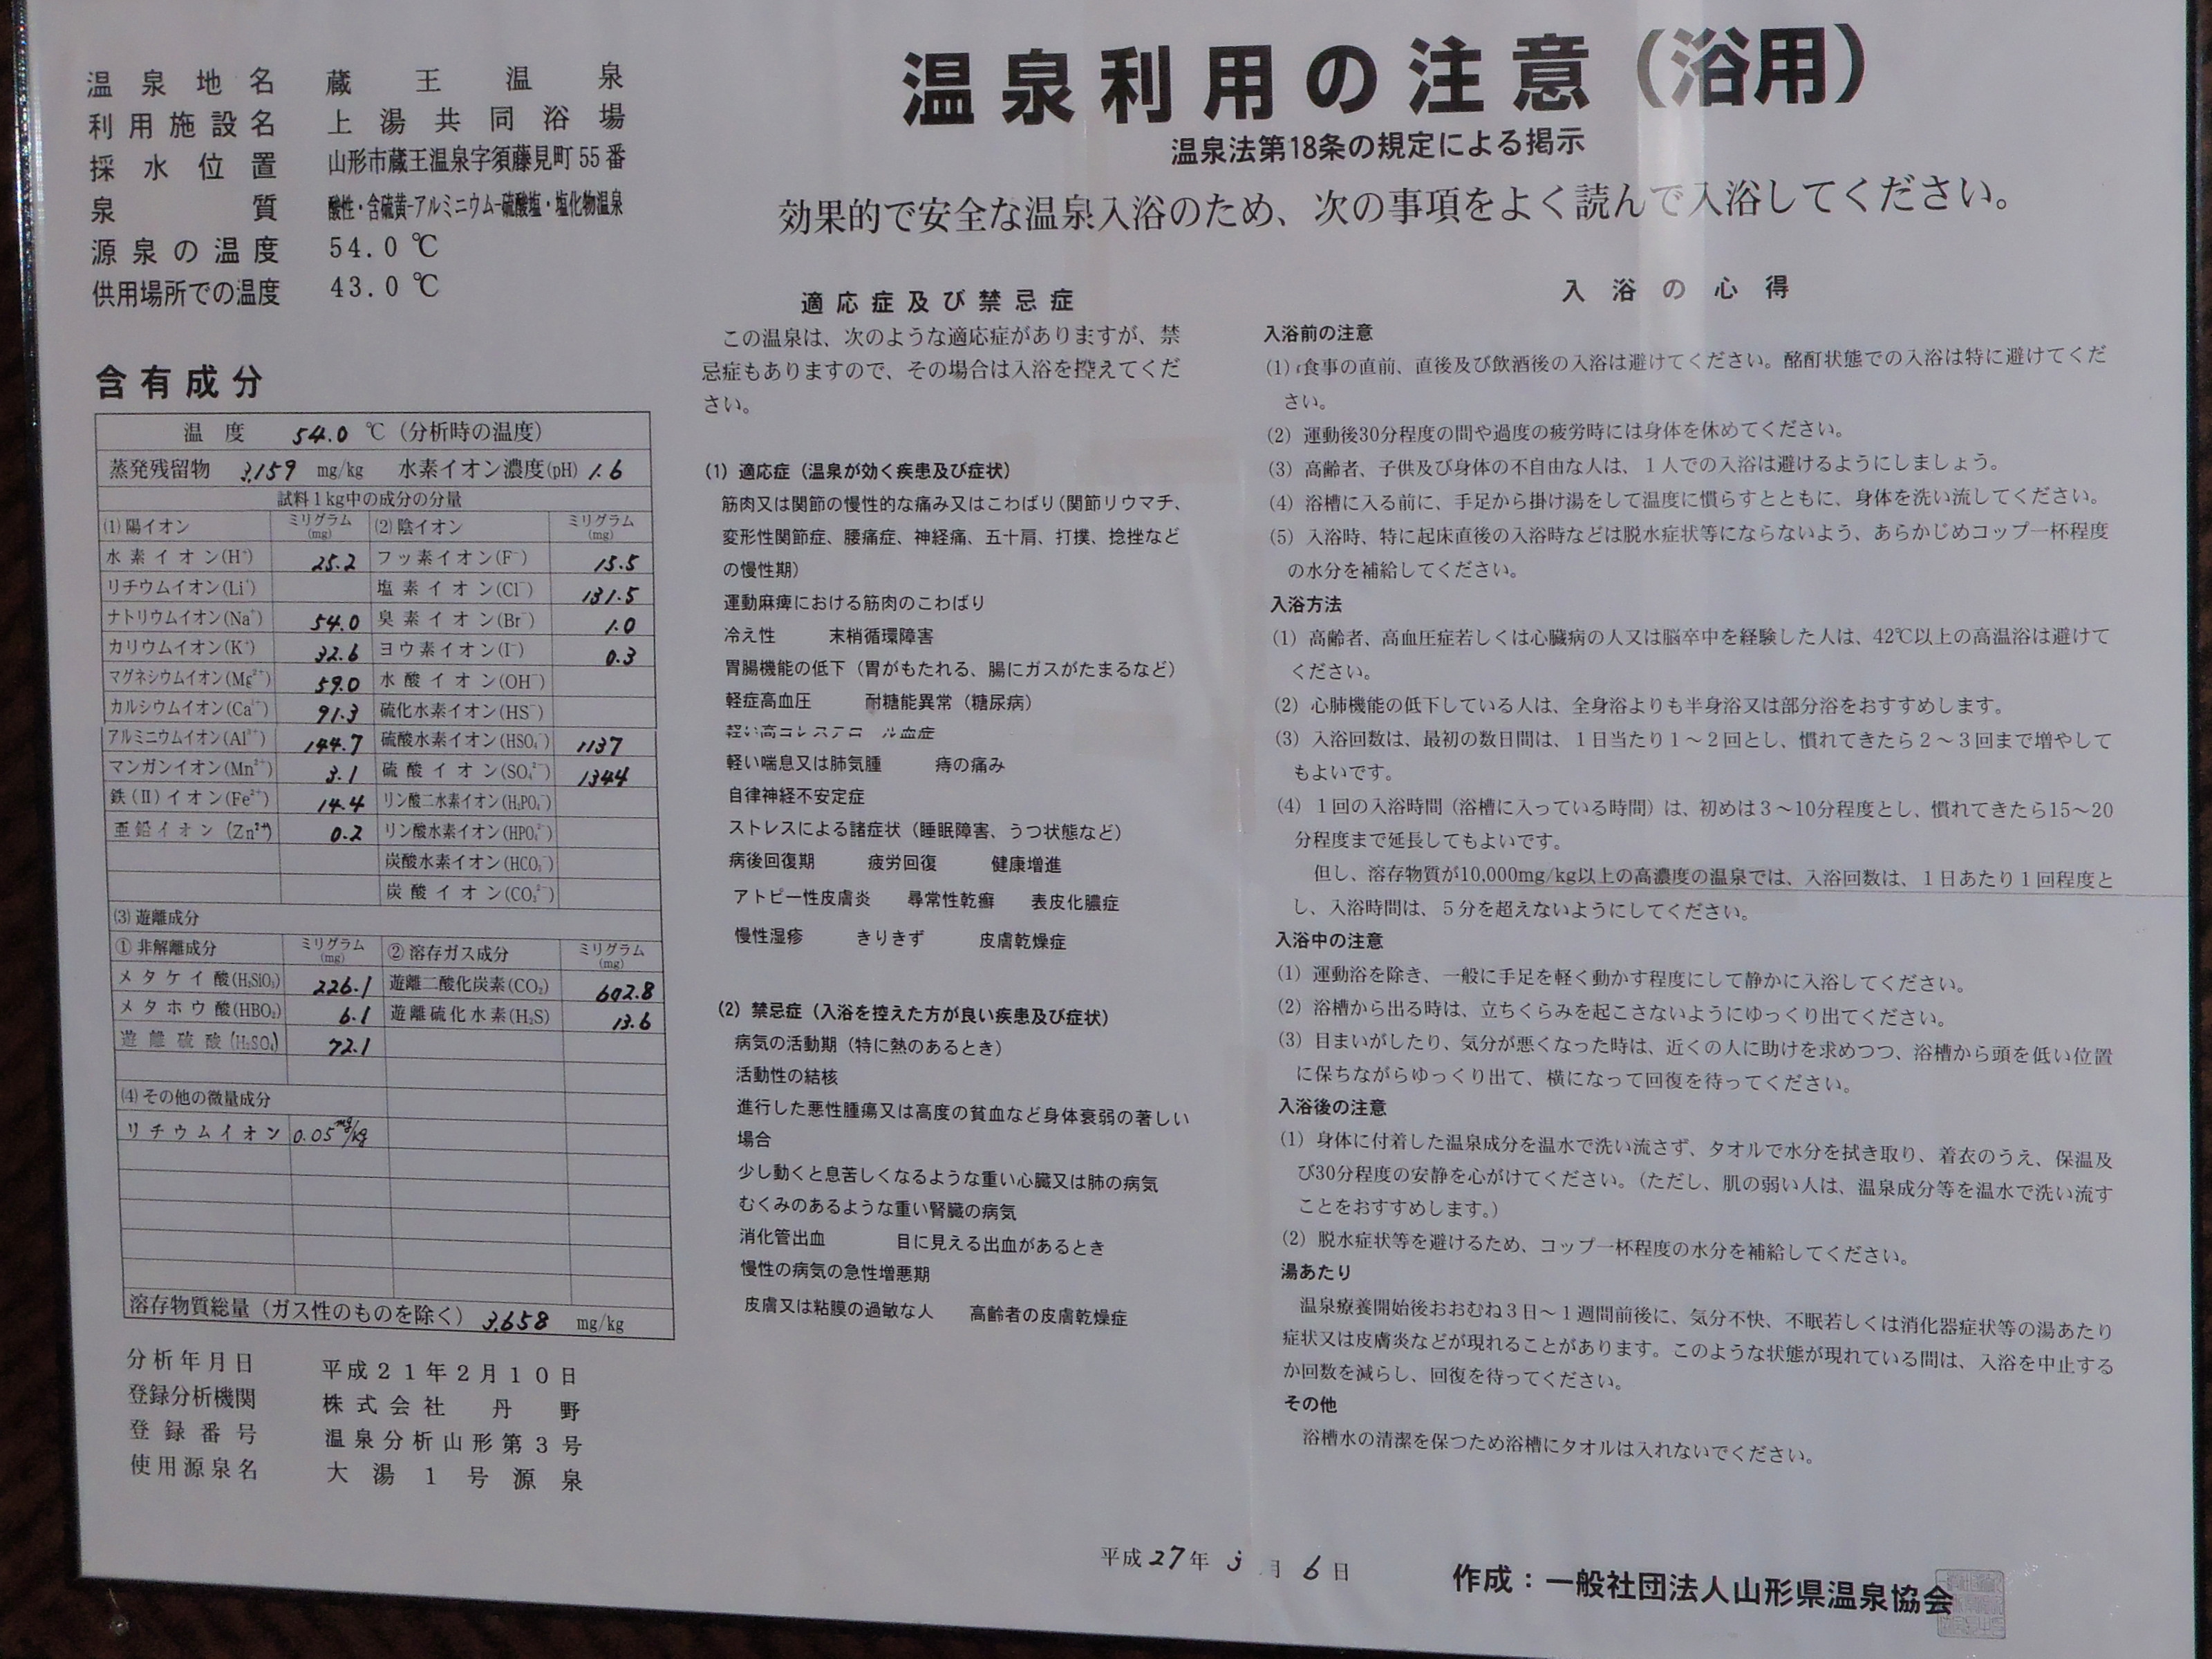 温泉利用の注意（浴用）
温泉法第18条の規定による掲示
効果的で安全な温泉入浴のため、次の事項をよく読んで入浴してください。
温泉地名 蔵王温泉
利用施設名 上湯共同浴場
採水位置 山形市蔵王温泉字須藤見町55番
泉質 酸性・含硫黄-アルミニウム-硫酸塩・塩化物温泉
源泉の温度 54.0 ℃
供用場所での温度 43.0 ℃
含有成分
温度 54.0 ℃（分析時の温度）
蒸発残留物 3,159 mg/kg 水素イオン濃度(pH) 1.6
試料1kg中の成分の分量
(1)陽イオン ミリグラム(mg) (2)陰イオン ミリグラム(mg)
水素イオン(H⁺) 25.2 フッ素イオン(F⁻) 15.5
リチウムイオン(Li⁺) 塩素イオン(Cl⁻) 131.5
ナトリウムイオン(Na⁺) 54.0 臭素イオン(Br⁻) 1.0
カリウムイオン(K⁺) 32.6 ヨウ素イオン(I⁻) 0.3
マグネシウムイオン(Mg²⁺) 59.0 水酸イオン(OH⁻)
カルシウムイオン(Ca²⁺) 91.3 硫化水素イオン(HS⁻)
アルミニウムイオン(Al³⁺) 144.7 硫酸水素イオン(HSO₄⁻) 1137
マンガンイオン(Mn²⁺) 3.1 硫酸イオン(SO₄²⁻) 1344
鉄(II)イオン(Fe²⁺) 14.4 リン酸二水素イオン(H₂PO₄⁻)
亜鉛イオン(Zn²⁺) 0.2 リン酸水素イオン(HPO₄²⁻)
炭酸水素イオン(HCO₃⁻)
炭酸イオン(CO₃²⁻)
(3)遊離成分
①非解離成分 ミリグラム(mg) ②溶存ガス成分 ミリグラム(mg)
メタケイ酸(H₂SiO₃) 226.1 遊離二酸化炭素(CO₂) 602.8
メタホウ酸(HBO₂) 6.1 遊離硫化水素(H₂S) 13.6
遊離硫酸(H₂SO₄) 72.1
(4)その他の微量成分
リチウムイオン 0.05mg/kg
溶存物質総量（ガス性のものを除く） 3,658 mg/kg
分析年月日 平成21年2月10日
登録分析機関 株式会社 丹野
登録番号 温泉分析山形第3号
使用源泉名 大湯1号源泉
適応症及び禁忌症
この温泉は、次のような適応症がありますが、禁
忌症もありますので、その場合は入浴を控えてくだ
さい。
(1) 適応症（温泉が効く疾患及び症状）
筋肉又は関節の慢性的な痛み又はこわばり（関節リウマチ、
変形性関節症、腰痛症、神経痛、五十肩、打撲、捻挫など
の慢性期）
運動麻痺における筋肉のこわばり
冷え性 末梢循環障害
胃腸機能の低下（胃がもたれる、腸にガスがたまるなど）
軽症高血圧 耐糖能異常（糖尿病）
軽い高コレステロール血症
軽い喘息又は肺気腫 痔の痛み
自律神経不安定症
ストレスによる諸症状（睡眠障害、うつ状態など）
病後回復期 疲労回復 健康増進
アトピー性皮膚炎 尋常性乾癬 表皮化膿症
慢性湿疹 きりきず 皮膚乾燥症
(2) 禁忌症（入浴を控えた方が良い疾患及び症状）
病気の活動期（特に熱のあるとき）
活動性の結核
進行した悪性腫瘍又は高度の貧血など身体衰弱の著しい
場合
少し動くと息苦しくなるような重い心臓又は肺の病気
むくみのあるような重い腎臓の病気
消化管出血 目に見える出血があるとき
慢性の病気の急性増悪期
皮膚又は粘膜の過敏な人 高齢者の皮膚乾燥症
入浴の心得
入浴前の注意
(1) 食事の直前、直後及び飲酒後の入浴は避けてください。酩酊状態での入浴は特に避けてくだ
さい。
(2) 運動後30分程度の間や過度の疲労時には身体を休めてください。
(3) 高齢者、子供及び身体の不自由な人は、1人での入浴は避けるようにしましょう。
(4) 浴槽に入る前に、手足から掛け湯をして温度に慣らすとともに、身体を洗い流してください。
(5) 入浴時、特に起床直後の入浴時などは脱水症状等にならないよう、あらかじめコップ一杯程度
の水分を補給してください。
入浴方法
(1) 高齢者、高血圧症若しくは心臓病の人又は脳卒中を経験した人は、42℃以上の高温浴は避けて
ください。
(2) 心肺機能の低下している人は、全身浴よりも半身浴又は部分浴をおすすめします。
(3) 入浴回数は、最初の数日間は、1日当たり1～2回とし、慣れてきたら2～3回まで増やして
もよいです。
(4) 1回の入浴時間（浴槽に入っている時間）は、初めは3～10分程度とし、慣れてきたら15～20
分程度まで延長してもよいです。
但し、溶存物質が10,000mg/kg以上の高濃度の温泉では、入浴回数は、1日あたり1回程度と
し、入浴時間は、5分を超えないようにしてください。
入浴中の注意
(1) 運動浴を除き、一般に手足を軽く動かす程度にして静かに入浴してください。
(2) 浴槽から出る時は、立ちくらみを起こさないようにゆっくり出てください。
(3) 目まいがしたり、気分が悪くなった時は、近くの人に助けを求めつつ、浴槽から頭を低い位置
に保ちながらゆっくり出て、横になって回復を待ってください。
入浴後の注意
(1) 身体に付着した温泉成分を温水で洗い流さず、タオルで水分を拭き取り、着衣のうえ、保温及
び30分程度の安静を心がけてください。（ただし、肌の弱い人は、温泉成分等を温水で洗い流す
ことをおすすめします。）
(2) 脱水症状等を避けるため、コップ一杯程度の水分を補給してください。
湯あたり
温泉療養開始後おおむね3日～1週間前後に、気分不快、不眠若しくは消化器症状等の湯あたり
症状又は皮膚炎などが現れることがあります。このような状態が現れている間は、入浴を中止する
か回数を減らし、回復を待ってください。
その他
浴槽水の清潔を保つため浴槽にタオルは入れないでください。
平成27年3月6日
作成：一般社団法人山形県温泉協会